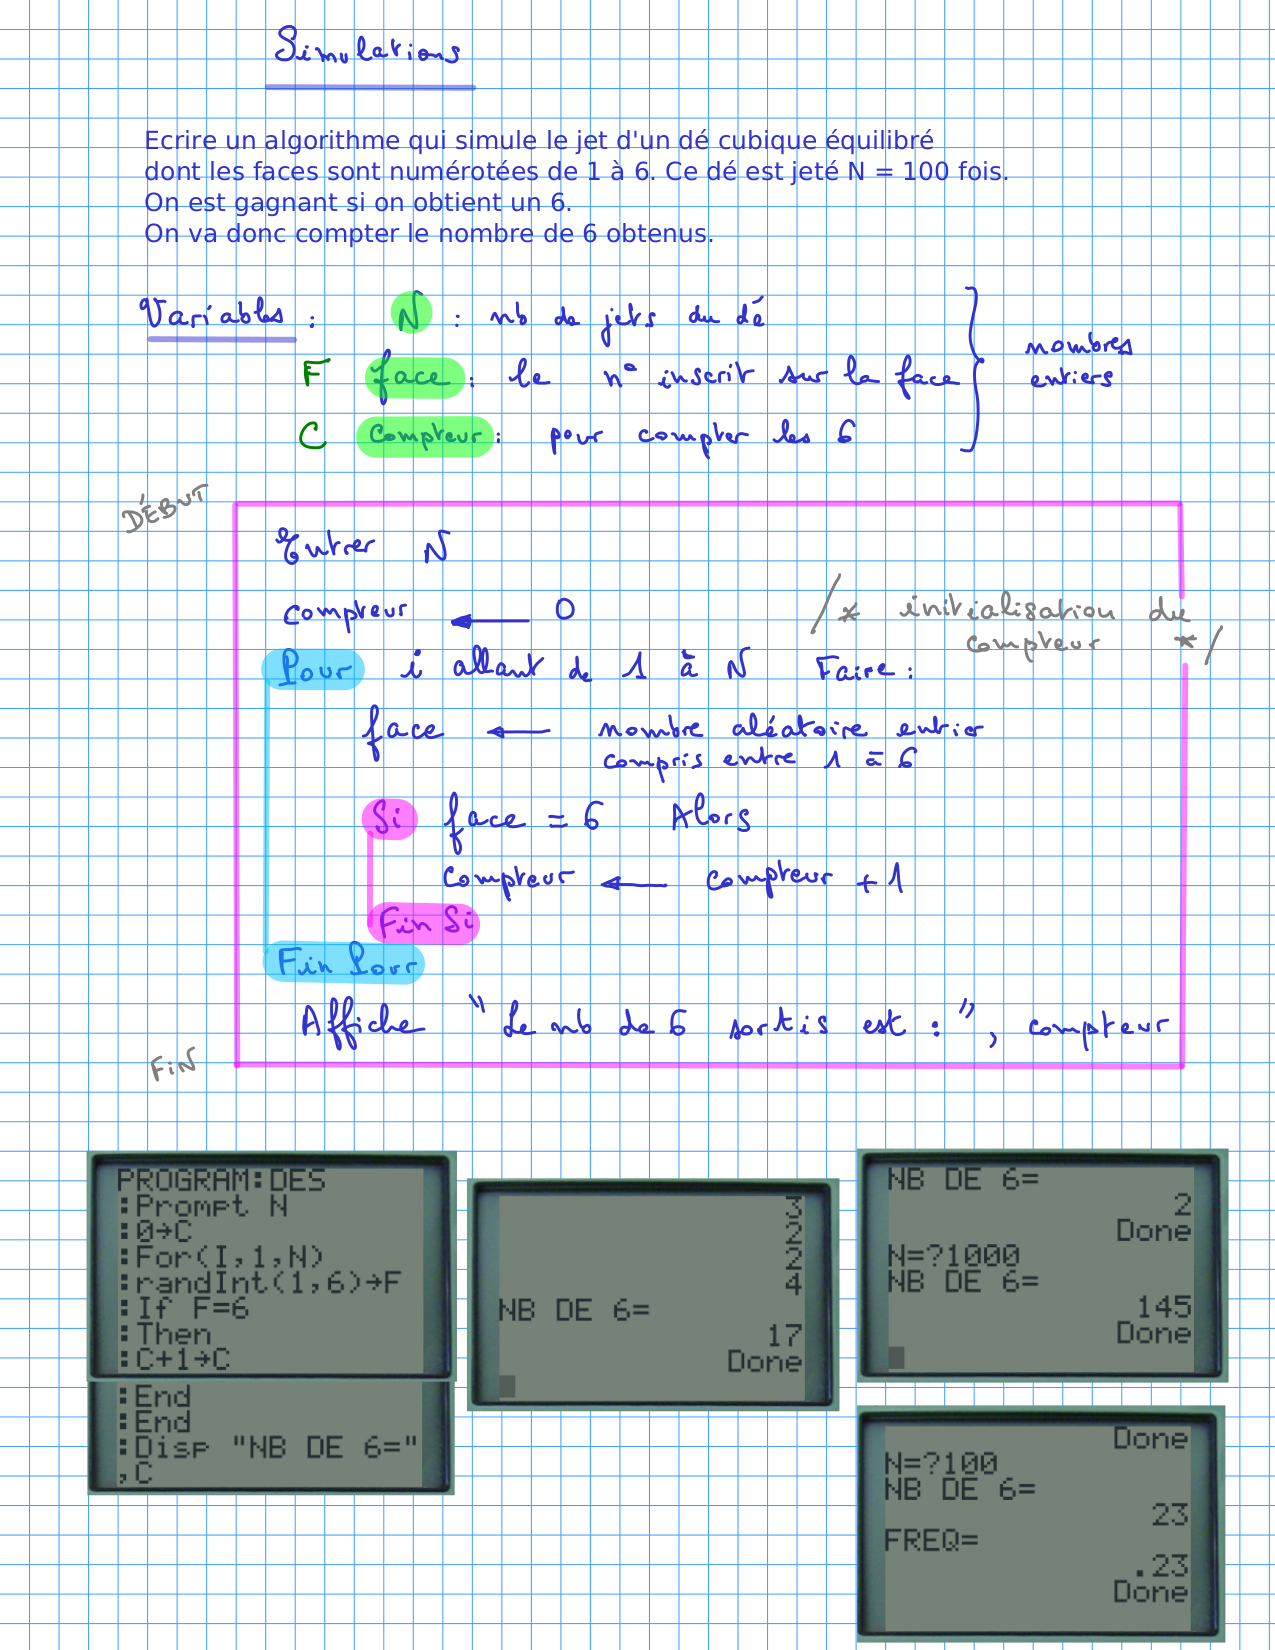 Simulations
Ecrire un algorithme qui simule le jet d'un dé cubique équilibré
dont les faces sont numérotées de 1 à 6. Ce dé est jeté N = 100 fois.
On est gagnant si on obtient un 6.
On va donc compter le nombre de 6 obtenus.
Variables : N : nb de jets du dé
F face : le n° inscrit sur la face
C Compteur : pour compter les 6
nombres
entiers
DÉBUT
Entrer N
compteur ← 0
/* initialisation du
compteur */
Pour i allant de 1 à N Faire :
face ← nombre aléatoire entier
compris entre 1 à 6
Si face = 6 Alors
compteur ← compteur + 1
Fin Si
Fin Pour
Affiche "Le nb de 6 sortis est : ", compteur
FiN
PROGRAM:DES
:Prompt N
:0→C
:For(I,1,N)
:randInt(1,6)→F
:If F=6
:Then
:C+1→C
:End
:End
:Disp "NB DE 6="
,C
3
2
2
4
NB DE 6=
17
Done
NB DE 6=
2
Done
N=?1000
NB DE 6=
145
Done
Done
N=?100
NB DE 6=
23
FREQ=
.23
Done